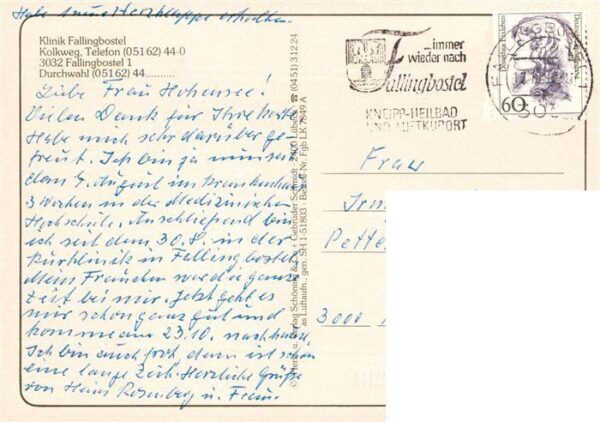 Habe neue Herzklappe erhalten.
Klinik Fallingbostel
Kolkweg, Telefon (05162) 44-0
3032 Fallingbostel 1
Durchwahl (05162) 44..........
Liebe Frau Hohensee!
Vielen Dank für Ihre Karte
Habe mich sehr darüber ge-
freut. Ich bin ja nun
dem 4. August im Krankenhaus
3 Wochen in der Medizinischen
Hochschule. Anschließend bin
ich seit dem 30.8. in der
Kurklinik in Fallingbostel
Mein Frauchen war die ganze
Zeit bei mir. Jetzt geht es
mir schon ganz gut und
komme am 23.10. nach Hause.
Ich bin auch froh, denn ist schon
eine lange Zeit. Herzliche Grüße
von Heinz Rosenberg u. Frau.
Schöning & Co + Gebrüder Schmidt · 2400 Lübeck ☎ (0451) 31224
gen. SH 1-51803 - Bestell-Nr. Fgb LK 7849 A
...immer
wieder nach
Fallingbostel
KNEIPP-HEILBAD
UND LUFTKURORT
60
Frau
Pette
3000